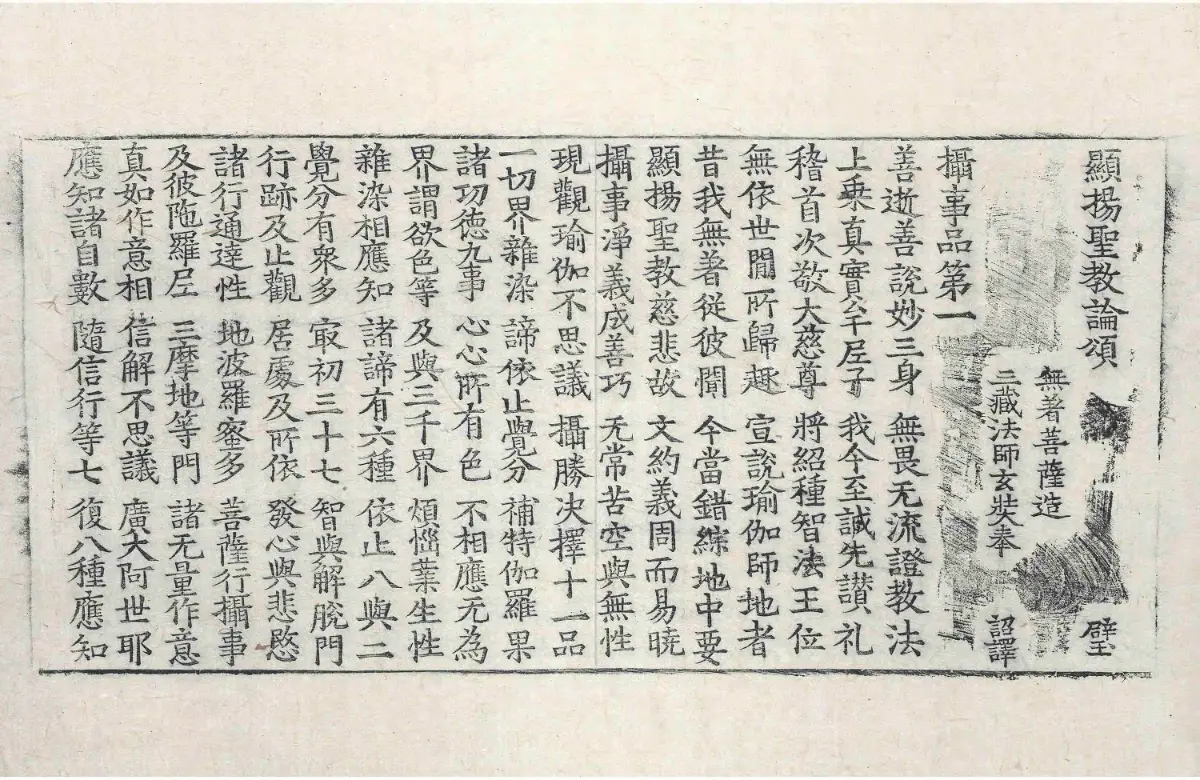 顯揚聖教論頌 璧
無著菩薩造
三藏法師玄奘奉 詔譯
攝事品第一
善逝善說妙三身 無畏无流證教法
上乗真實牟尼子 我今至誠先讃礼
稽首次敬大慈尊 將紹種智法王位
無依世閒所歸趣 宣說瑜伽師地者
昔我無著從彼聞 今當錯綜地中要
顯揚聖教慈悲故 文約義周而易曉
攝事淨義成善巧 无常苦空與無性
現觀瑜伽不思議 攝勝決擇十一品
一切界雜染 諦依止覺分 補特伽羅果
諸功徳九事 心心所有色 不相應无為
界謂欲色等 及與三千界 煩惱業生性
雜染相應知 諸諦有六種 依止八與二
覺分有衆多 冣初三十七 智與解脫門
行跡及止觀 居處及所依 發心與悲愍
諸行通達性 地波羅蜜多 菩薩行攝事
及彼陁羅尼 三摩地等門 諸无量作意
真如作意相 信解不思議 廣大阿世耶
應知諸自數 隨信行等七 復八種應知